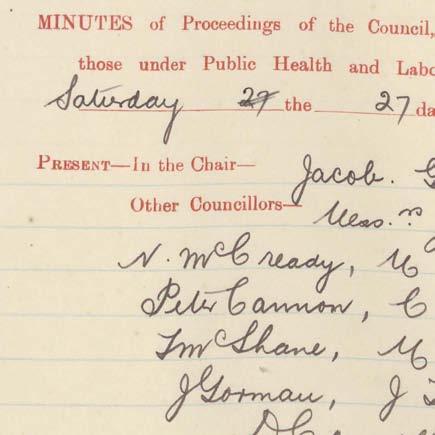 MINUTES of Proceedings of the Council,
those under Public Health and Labo
Saturday 27 the 27 da
PRESENT—In the Chair— Jacob. G
Other Councillors— Mess.rs
N. McCready, M
Peter Cannon, C
T McShane, M
J Gorman, J